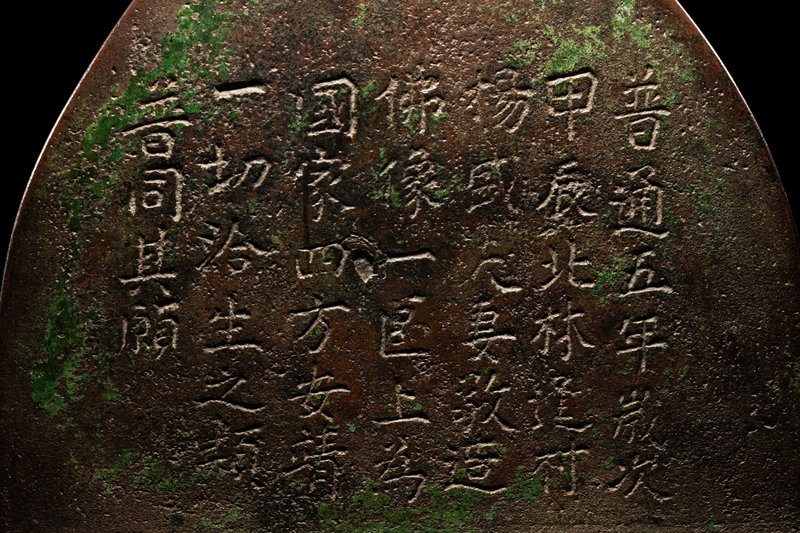 普通五年歲次
甲辰北林村
楊元妻敬造
佛像一上為
國家四方安靖
一切洽生之類
普同其願